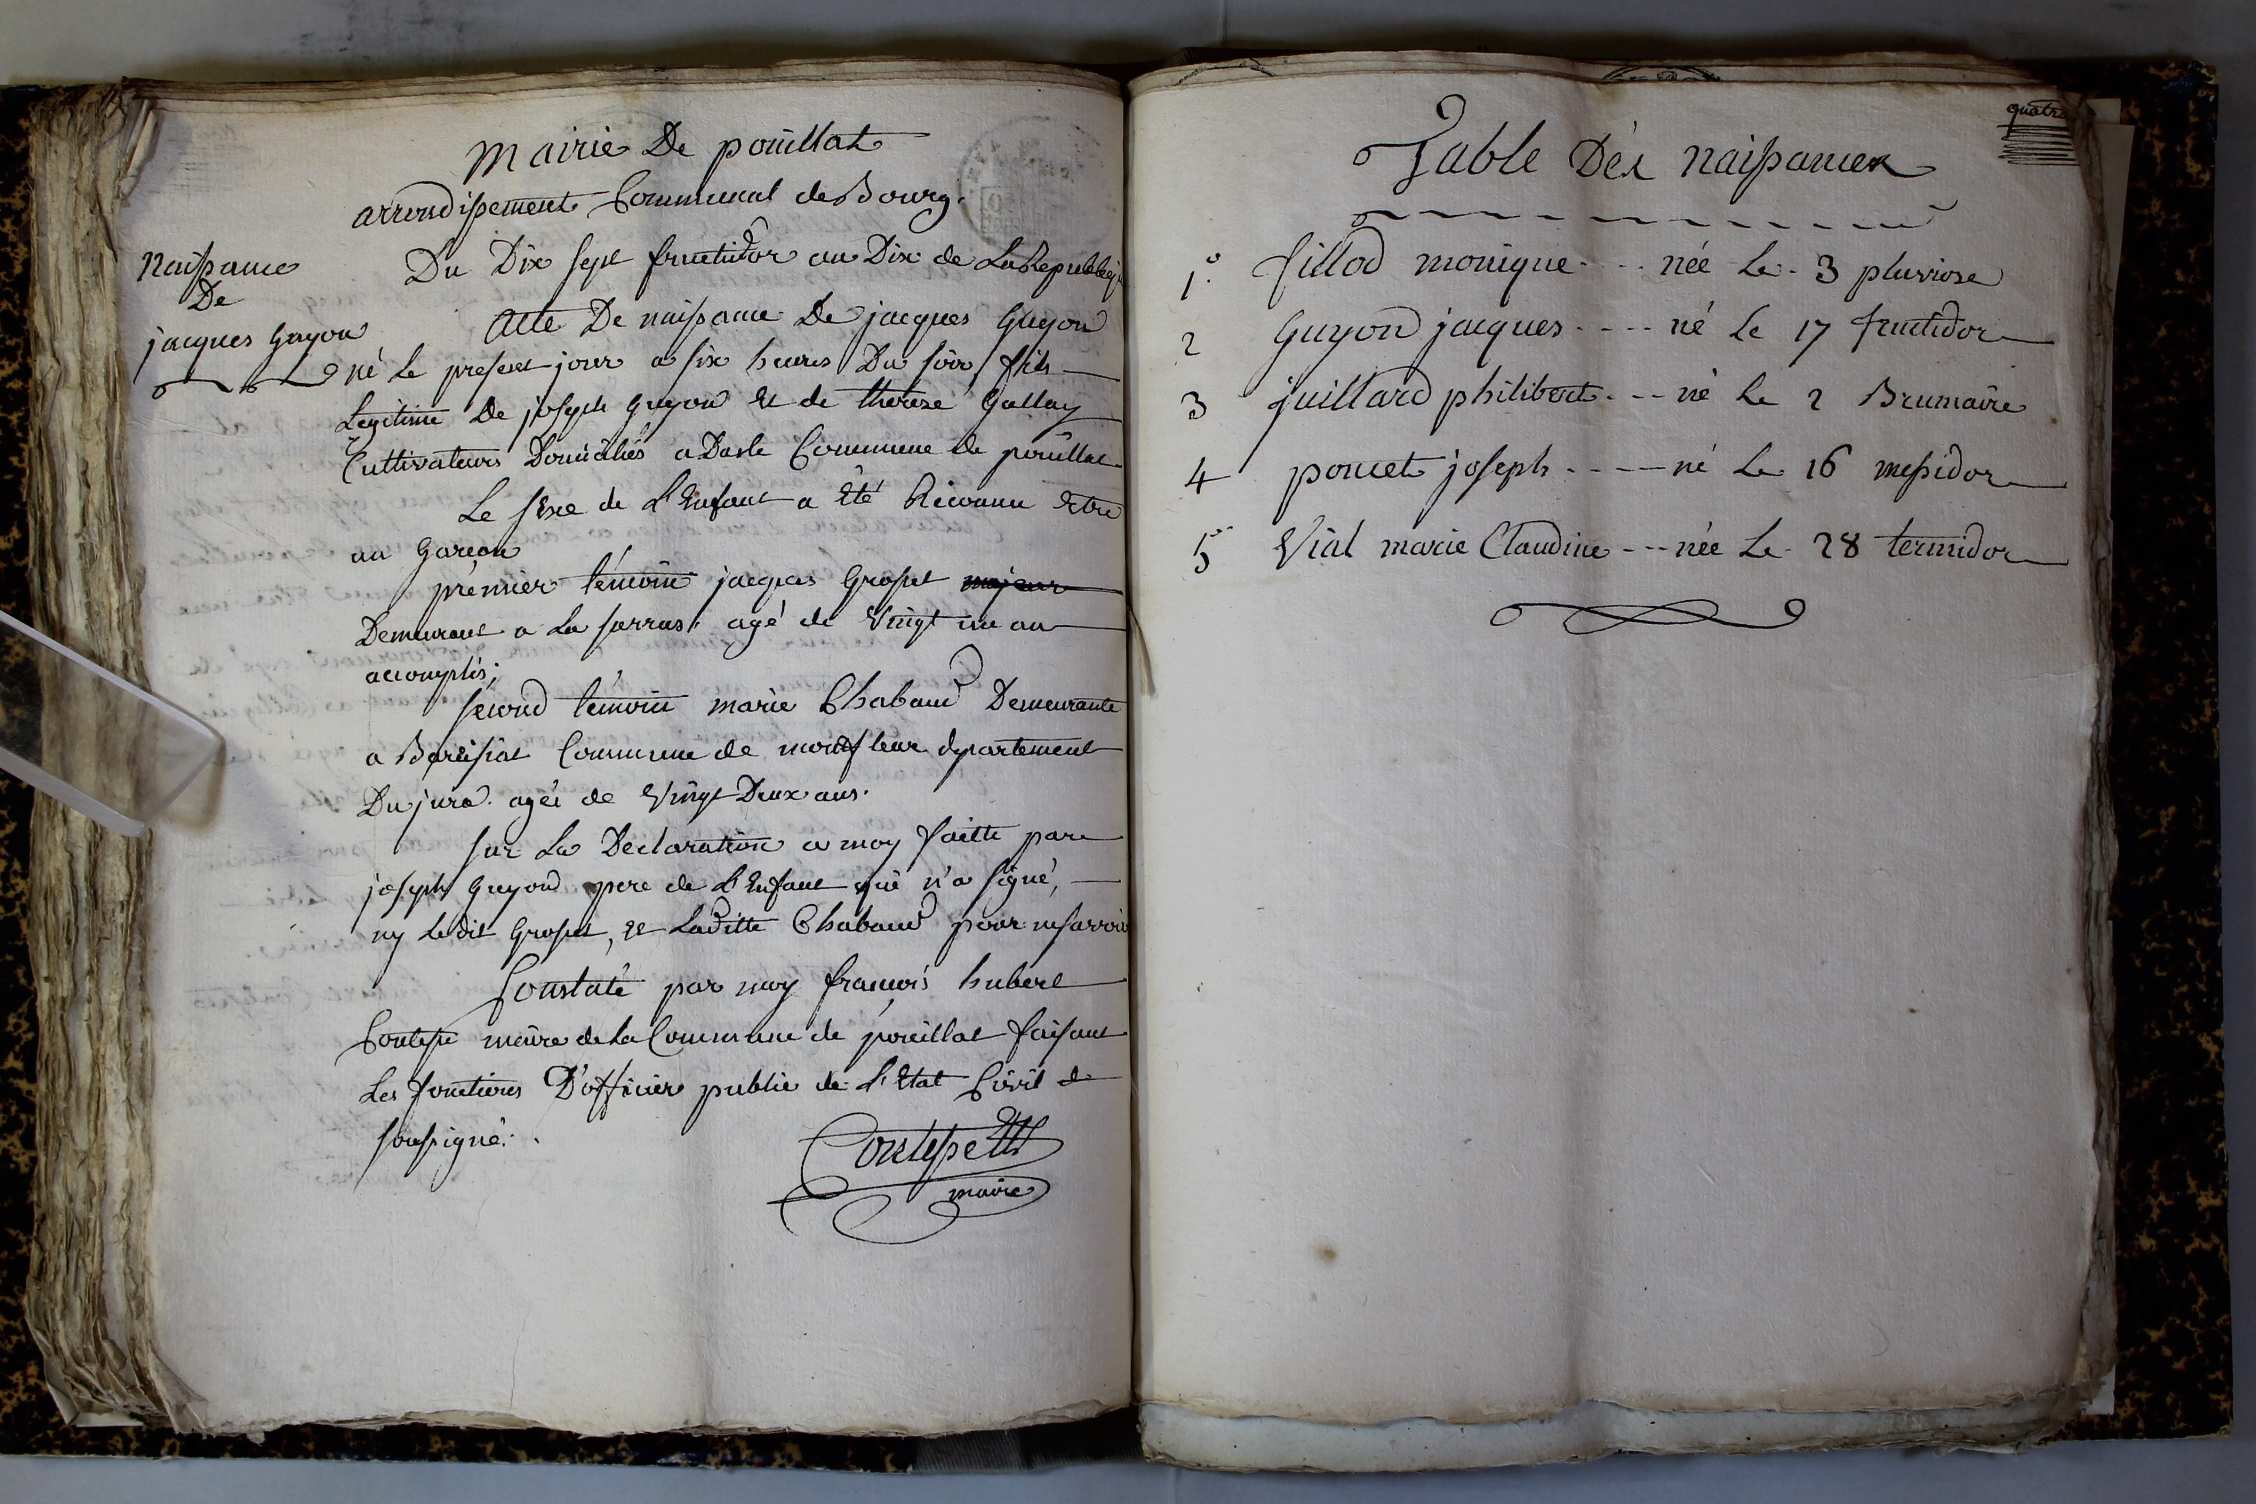 Mairie De pouillat
arrondissement Communal de Bourg.
Naissance
De
jacques Guyon
Du Dix sept fructidor an Dix de La Republiq
Acte De naissance De jacques Guyon
né le present jour a six heures Du soir fils
Legitime De joseph Guyon et de therese Gallay
Cultivateurs Domiciliés a Dasle Commune de pouillat
Le sexe de L'Enfant a Eté Reconnu Etre
un Garcon
prémier témoin jacques Grosset majeur
Demeurant a La sarras agé de Vingt un an
accomplis;
second témoin marie Chabaud Demeurante
a Baresiat Commune de montfleur departement
Du jura. agée de Vingt Deux ans.
sur La Declaration a moy faitte par
joseph Guyond pere de L'Enfant qui n'a signé,
ny Ledit Grosset, et Laditte Chabaud pour ne savoir
Constaté par moy francois hubert
Contesse maire de La Commune de pouillat faisant
Les fonctions D'officier public de L'Etat Civil
soussigné.
Contesse
maire
quatre
Table Dés naissances
1.° fillod monique - - - née Le 3 pluviose
2 Guyond jacques - - - - né Le 17 fructidor
3 juillard philibert - - - né Le 2 Brumaire
4 poncet joseph - - - - né Le 16 messidor
5 Vial marie Claudine - - - née Le 28 termidor